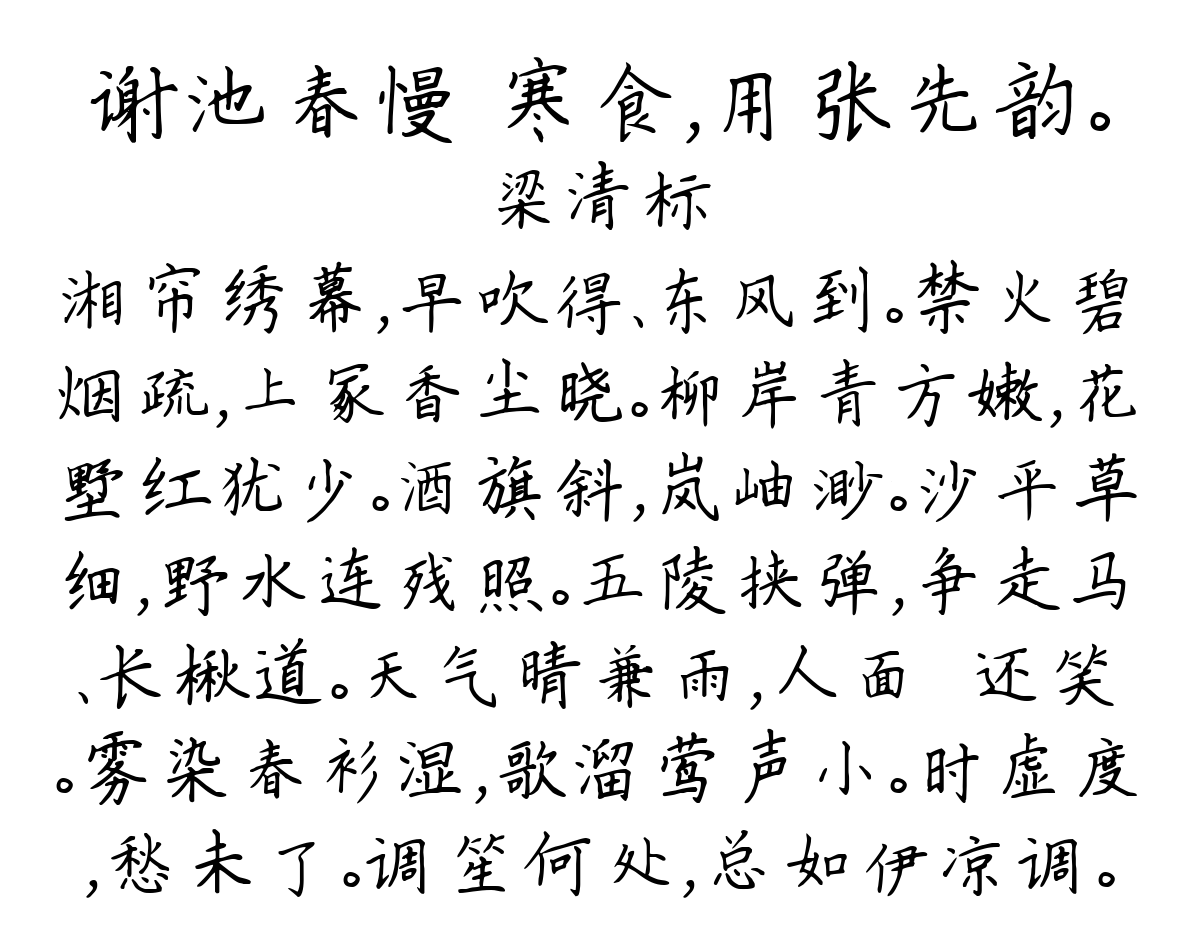 谢池春慢 寒食,用张先韵。
梁清标
湘帘绣幕,早吹得、东风到。禁火碧
烟疏,上冢香尘晓。柳岸青方嫩,花
墅红犹少。酒旗斜,岚岫渺。沙平草
细,野水连残照。五陵挟弹,争走马
、长楸道。天气晴兼雨,人面 还笑
。雾染春衫湿,歌溜莺声小。时虚度
,愁未了。调笙何处,总如伊凉调。